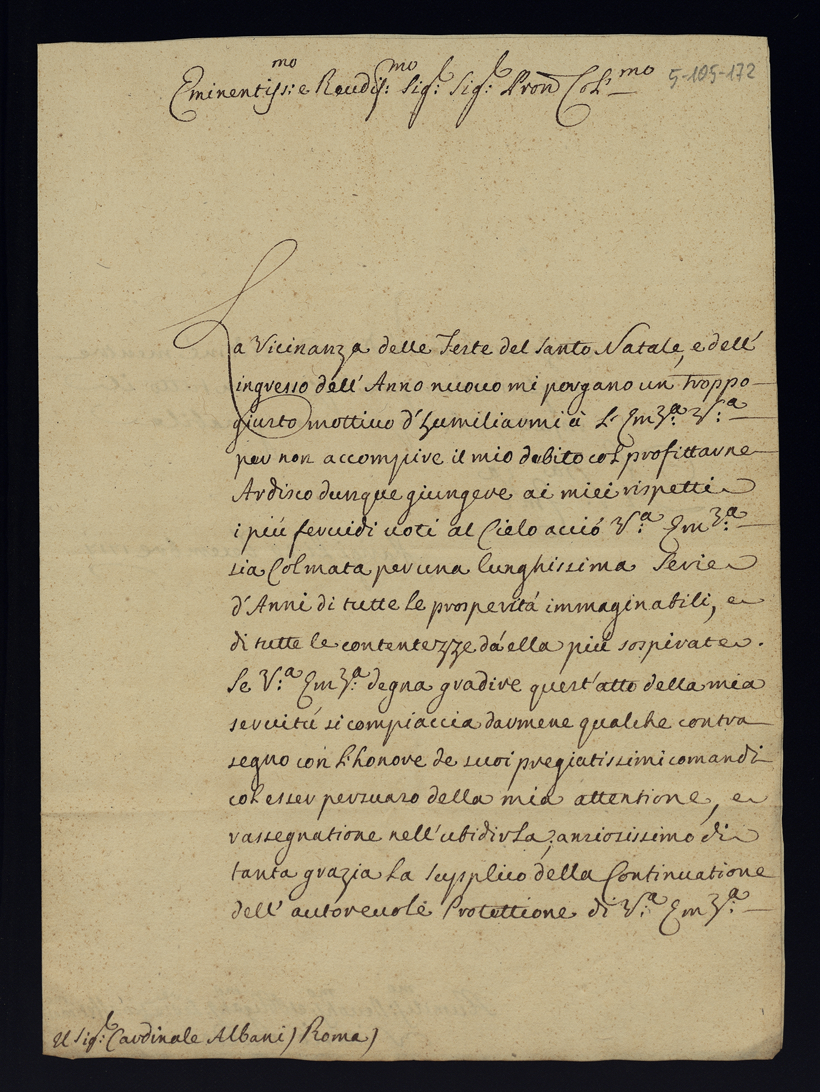 Eminentiss:mo e Reudiss:mo Sig:r Sig:r Pron Col:mo
5-105-172
La Vicinanza delle Feste del Santo Natale, e dell'
ingresso dell' Anno nuouo mi porgano un troppo
giusto mottiuo d'humiliarmi à L'Em:za V:a
per non accompire il mio debito col profittarne
Ardisco dunque giungere ai miei rispetti
i più feruidi uoti al Cielo acciò V:a Em:za
sia Colmata per una lunghissima Serie
d'Anni di tutte le prosperità immaginabili, e
di tutte le contentezze dà ella più sospirate.
Se V:a Em:za degna gradire quest'atto della mia
seruitù si compiaccia darmene qualche contra
segno con l'honore de suoi pregiatissimi comandi
col esser persuaso della mia attentione, e
rassegnatione nell'ubidirla; ansiosissimo di
tanta grazia la supplico della Continuatione
dell' autoreuole Protettione di V:a Em:za
Il Sig:r Cardinale Albani) Roma)